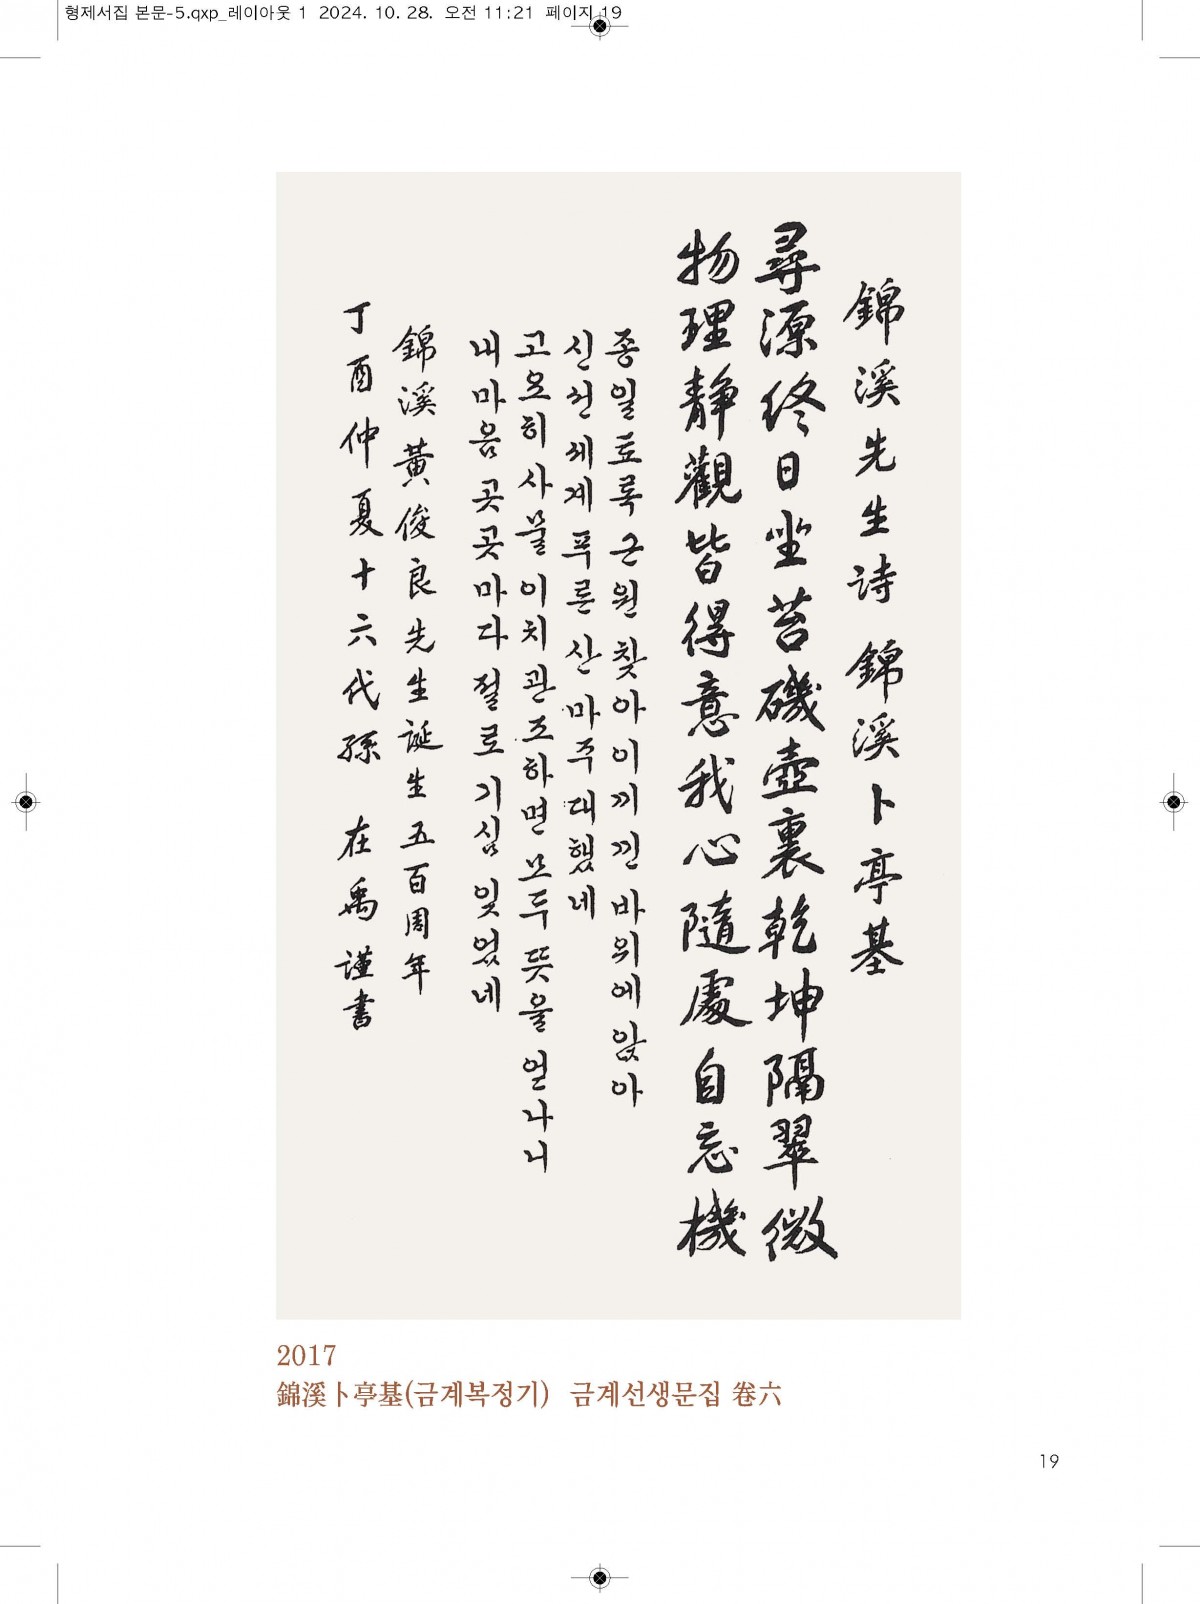 형제서집 본문-5.qxp_레이아웃 1 2024. 10. 28. 오전 11:21 페이지 19
錦溪先生詩 錦溪卜亭基
尋源終日坐苔磯壺裏乾坤隔翠微
物理靜觀皆得意我心隨處自忘機
종일토록 근원 찾아 이끼낀 바위에 앉아
신선세계 푸른 산 마주 대했네
고요히 사물 이치 관조하면 모두 뜻을 얻나니
내 마음 곳곳마다 절로 기심 잊었네
錦溪黃俊良先生誕生五百周年
丁酉仲夏十六代孫 在禹謹書
2017
錦溪卜亭基(금계복정기) 금계선생문집 卷六
19